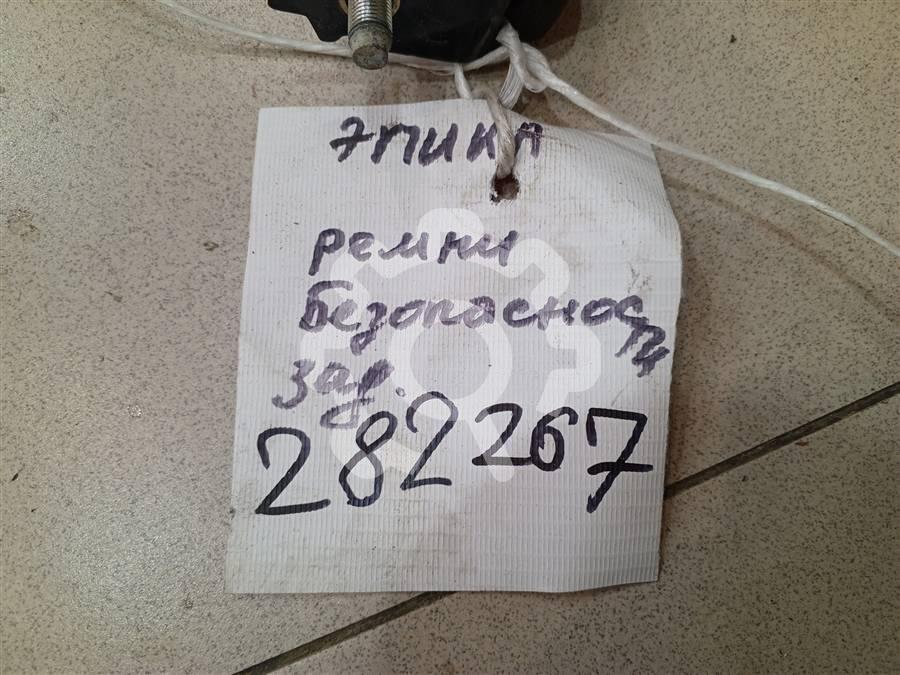 Эпика
ремни
безопасности
зад.
282267